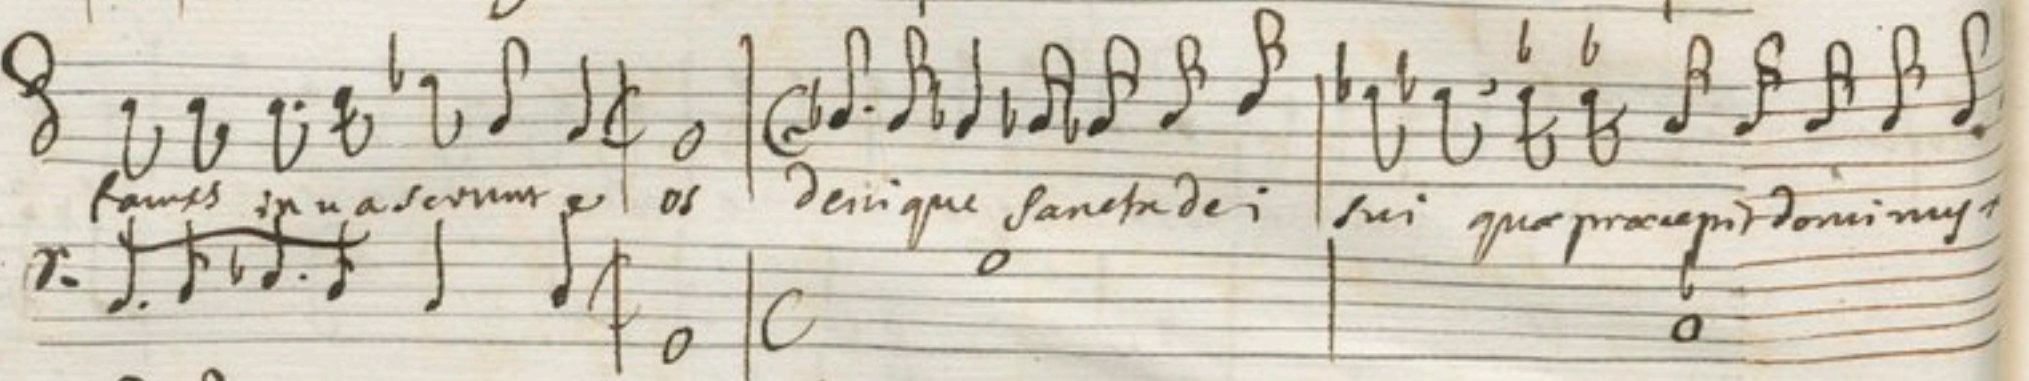 fames inuaserunt e os denique sancta dei sui quæ præcepit dominus